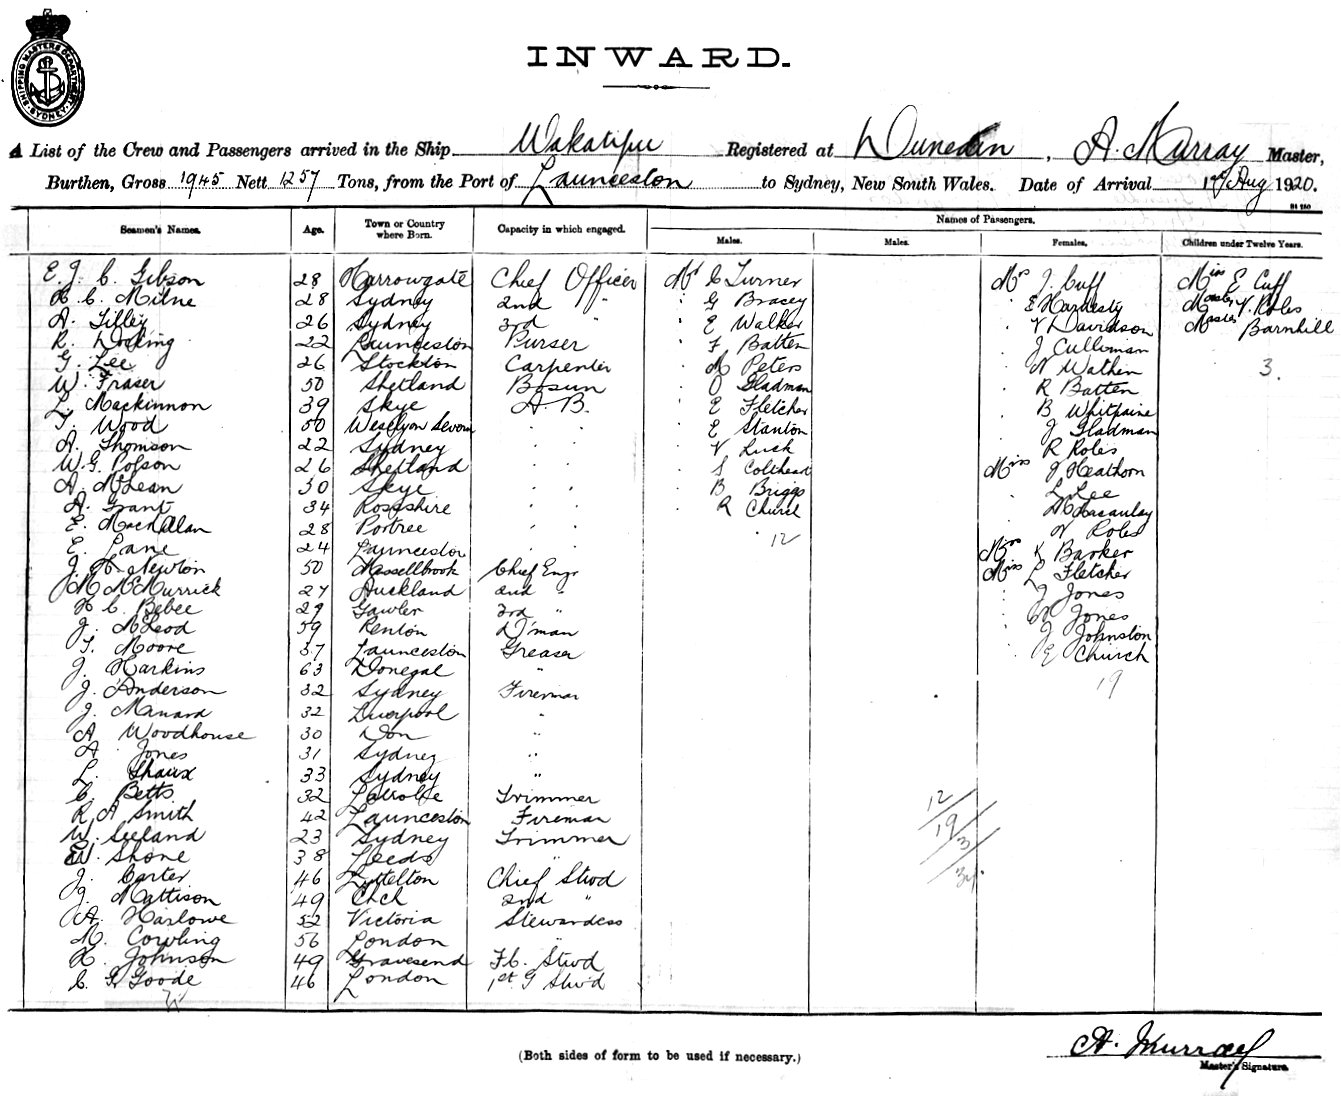 SHIPPING MASTERS DEPARTMENT SYDNEY
INWARD.
A List of the Crew and Passengers arrived in the Ship Wakatipu Registered at Dunedin, A. Murray Master,
Burthen, Gross 1945 Nett 1257 Tons, from the Port of Launceston to Sydney, New South Wales. Date of Arrival 1st Aug 1920.
Names of Passengers.
Seamen's Names. Age. Town or Country where Born. Capacity in which engaged. Males. Males. Females. Children under Twelve Years.
E. J. C. Gibson 28 Harrowgate Chief Officer Mr C Turner Mrs J. Cuff Miss E Cuff
H. C. Milne 28 Sydney 2nd " " G Bracey E Hardesty Master V. Roles
A. Tilley 26 Sydney 3rd " " E Walker V Davidson Master Barnhill
R. Docking 22 Launceston Purser " F Batten J Culliman
G. Lee 26 Stockton Carpenter " M Peters N Wathen 3.
W. Fraser 50 Shetland Bosun " O Gladman R Batten
L. Mackinnon 39 Skye A. B. " E Fletcher B Whitpaine
T. Wood 50 " " " E Stanton J Gladman
A. Thomson 22 Sydney " " " V Lusk R Roles
W. G. Polson 26 Shetland " " " S Colthead Miss J Heathorn
A. McLean 30 Skye " " " B Briggs L Lee
A. Grant 34 Rossshire " " " R Church M Macaulay
E. MacAllan 28 Portree " " 12 V Roles
E. Lane 24 Launceston " " Mrs K Barker
J. H. Newton 50 Massellbrook Chief Engr Miss L Fletcher
J. M. McMurrick 27 Auckland 2nd " J Jones
H C. Bebee 29 Gawler 3rd " Jones
J. McLeod 59 Renton D'man J Johnston
T. Moore 37 Launceston Greaser E Church
J. Harkins 63 Donegal " 19
J. Anderson 32 Sydney Fireman
J. Manard 32 Liverpool "
A. Woodhouse 30 Don "
A. Jones 31 Sydney "
L. 33 Sydney "
C. Betts 32 Latrobe Trimmer 12
R. A Smith 42 Launceston Fireman 19
W. Seeland 23 Sydney Trimmer 3
W. Shone 38 Leeds "
J. Carter 46 Lyttelton Chief Stwd 34
J. Mattison 49 Chch 2nd "
A. Harlowe 52 Victoria Stewardess
M. Cowling 56 London "
H. Johnson 49 Gravesend F.C. Stwd
C. G. Goode 46 London 1st G Stwd
A. Murray
(Both sides of form to be used if necessary.)
Master's Signature.